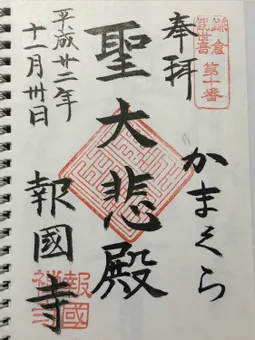 鎌倉
観世音
第十番
奉拝
かまくら
聖大悲殿
平成廿二年
十一月卅日
報國寺
報國